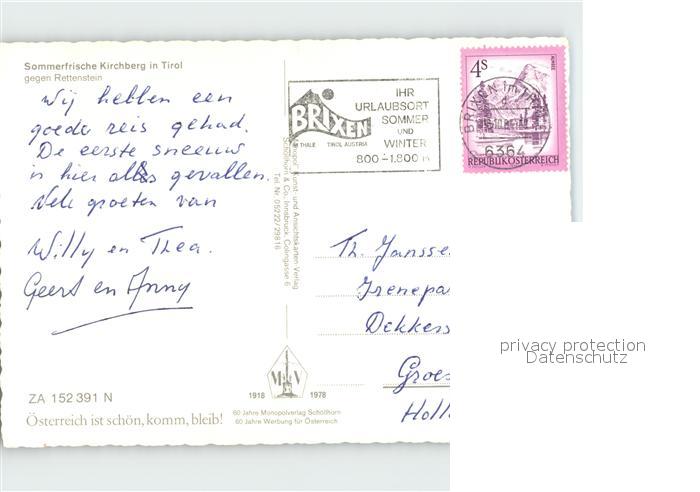 Sommerfrische Kirchberg in Tirol
gegen Rettenstein
Wij hebben een
goede reis gehad.
De eerste sneeuw
is hier al gevallen.
Vele groeten van
Willy en Thea.
Geert en Anny
ZA 152 391 N
Österreich ist schön, komm, bleib!
BRIXEN
IM THALE TIROL AUSTRIA
IHR
URLAUBSORT
SOMMER
UND
WINTER
800-1.800 m
4S
REPUBLIK ÖSTERREICH
BRIXEN IM
6364
Monopol Kunst- und Ansichtskarten-Verlag
Schöllhorn & Co., Innsbruck, Colingasse 6
Tel. Nr. 05222/29816
Th. Jansse
Irenepa
Dekkers
Groes
Holl
M V
1918 1978
60 Jahre Monopolverlag Schöllhorn
60 Jahre Werbung für Österreich
privacy protection
Datenschutz